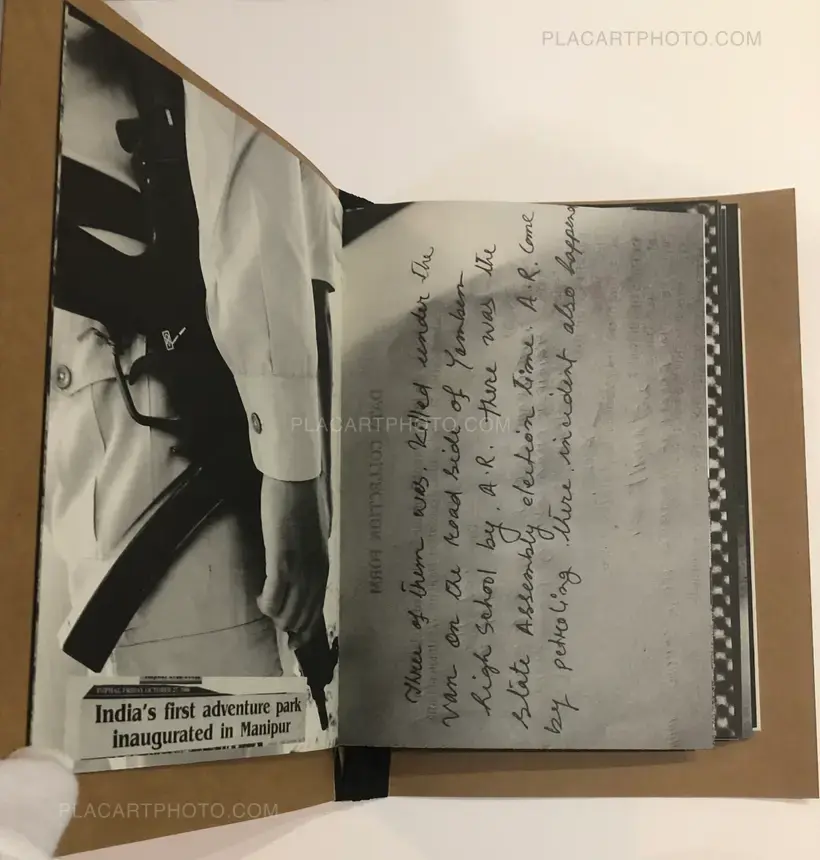 PLACARTPHOTO.COM
IMPHAL, FRIDAY, OCTOBER 27,
India's first adventure park
inaugurated in Manipur
Three of them was killed under the
van on the road side of Yambem
high School by A.R. There was the
State Assembly election time. A.R. come
by petroling there incident also happend
DATA COLLECTION FORM
PLACARTPHOTO.COM
PLACARTPHOTO.COM